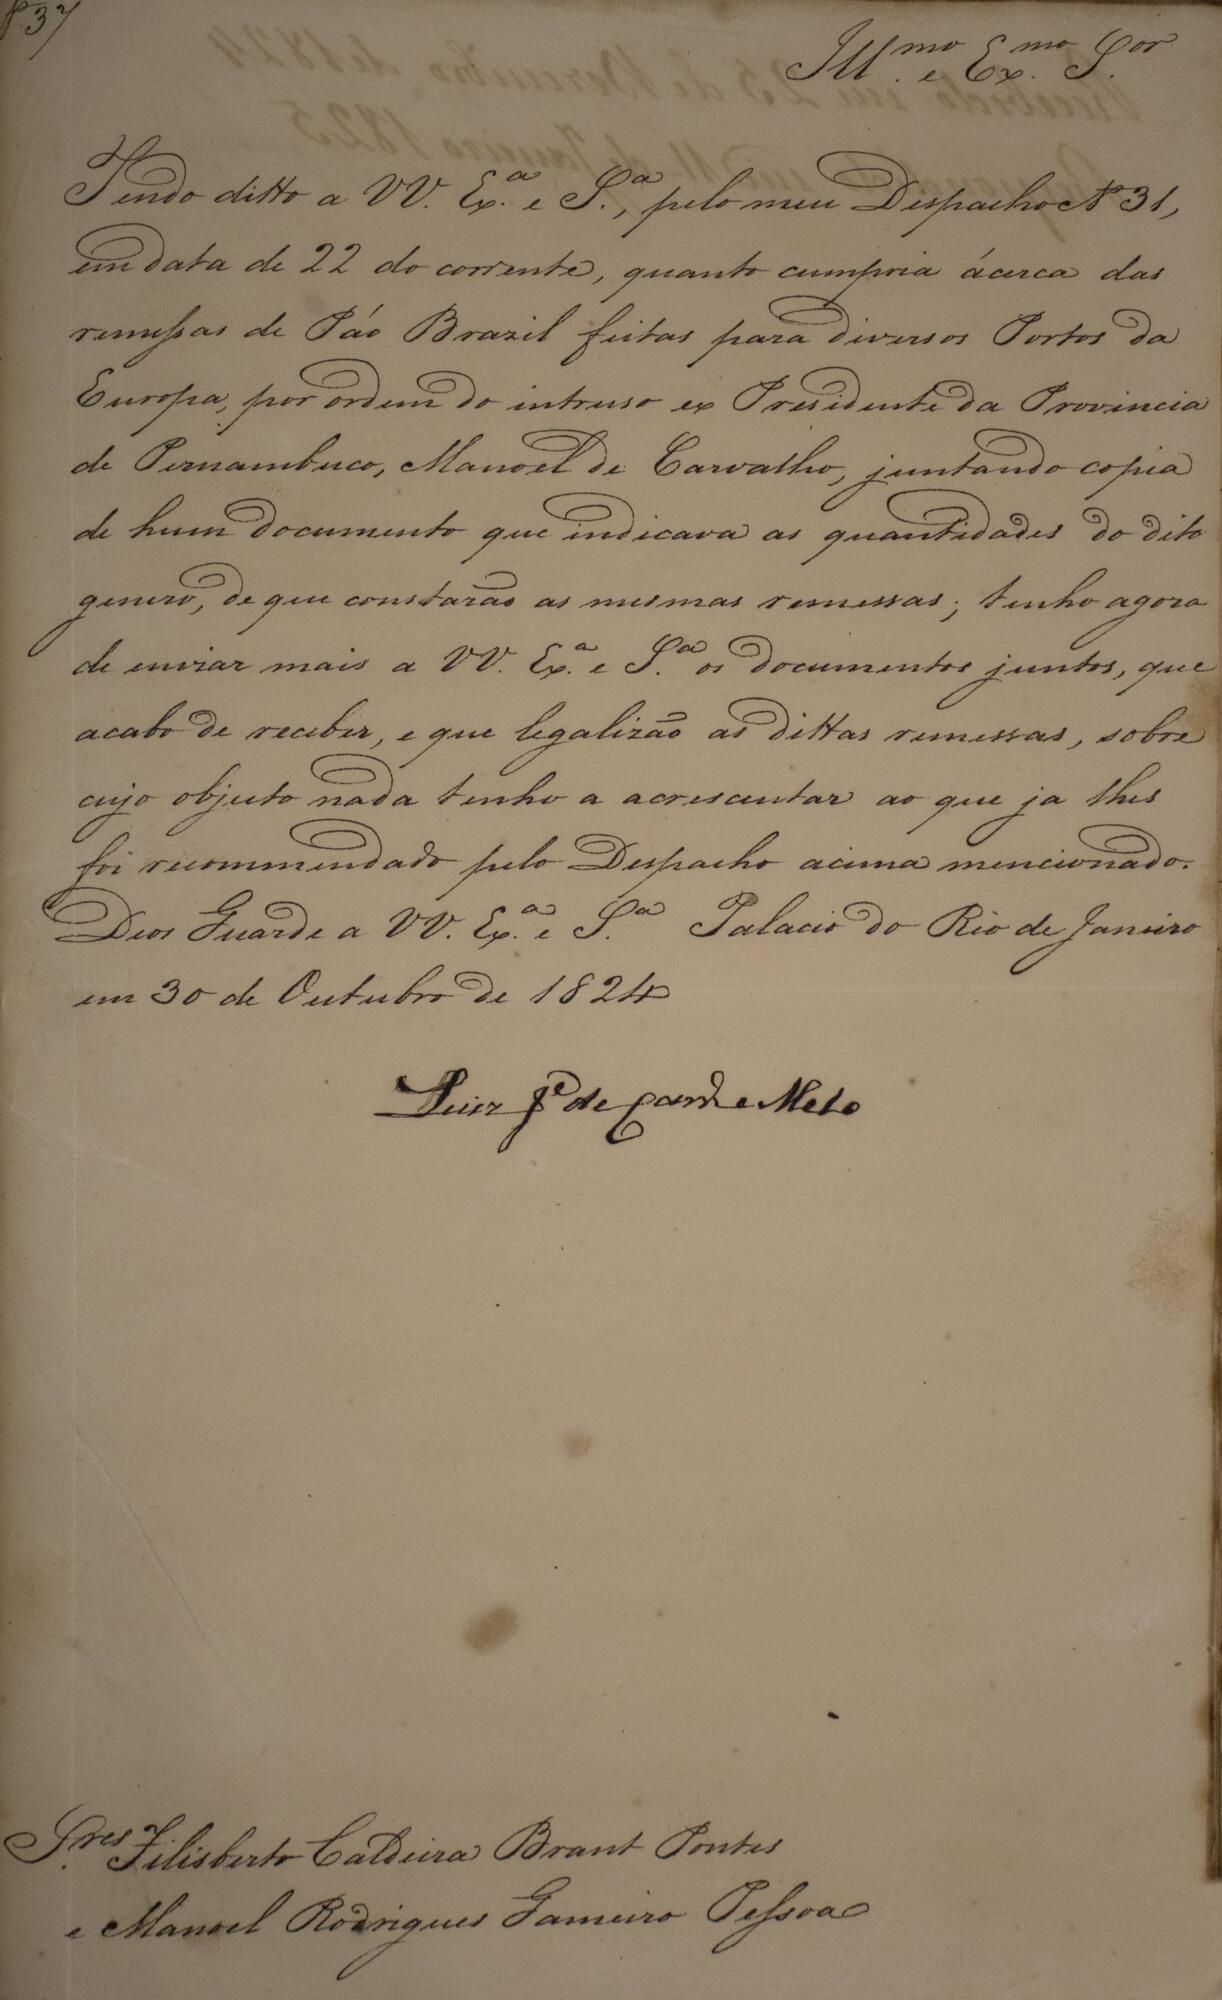 Nº 37
Ill.mo e Ex.mo S.or
Tendo ditto a VV. Ex.a e S.a, pelo meu Despacho Nº 31,
em data de 22 do corrente, quanto cumpria ácerca das
remessas de Páo Brazil feitas para diversos Portos da
Europa, por ordem do intruso ex Presidente da Provincia
de Pernambuco, Manoel de Carvalho, juntando copia
de hum documento que indicava as quantidades do dito
genero, de que constarão as mesmas remessas; tenho agora
de enviar mais a VV. Ex.a e S.a os documentos juntos, que
acabo de receber, e que legalizão as dittas remessas, sobre
cujo objecto nada tenho a acrescentar ao que ja lhes
foi recommendado pelo Despacho acima mencionado.
Deos Guarde a VV. Ex.a e S.a Palacio do Rio de Janeiro
em 30 de Outubro de 1824
Luiz Je de Carvo e Mello
S.res Filisberto Caldeira Brant Pontes
e Manoel Rodrigues Gameiro Pessoa